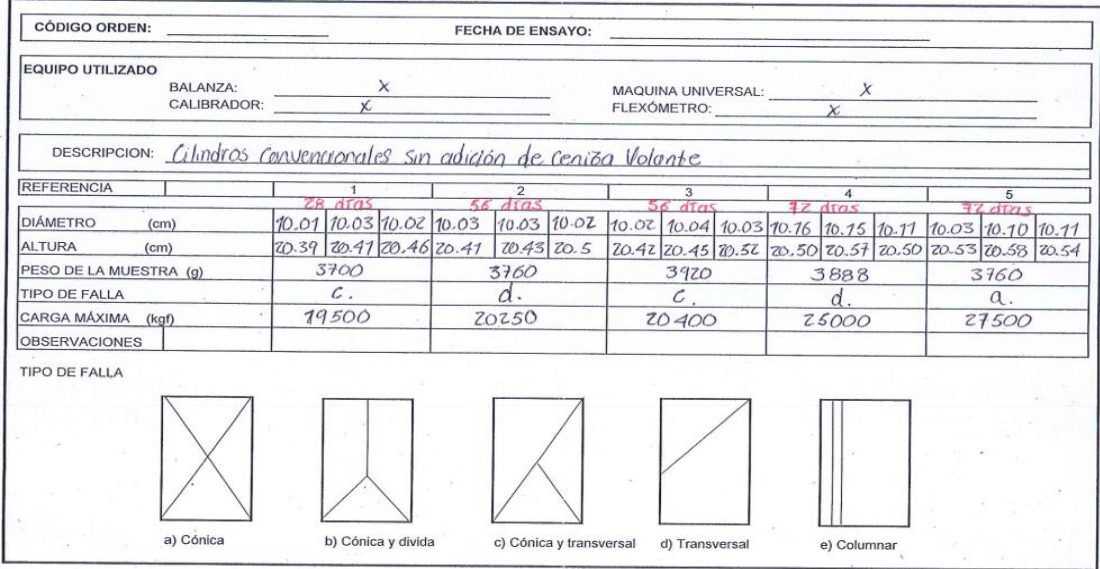 CÓDIGO ORDEN: FECHA DE ENSAYO:
EQUIPO UTILIZADO
BALANZA: X MAQUINA UNIVERSAL: X
CALIBRADOR: X FLEXÓMETRO: X
DESCRIPCION: Cilindros Convencionales sin adición de Ceniza Volante
REFERENCIA 1 2 3 4 5
28 días 56 días 56 días 72 días 72 días
DIÁMETRO (cm) 10.01 10.03 10.02 10.03 10.03 10.02 10.02 10.04 10.03 10.16 10.15 10.11 10.03 10.10 10.11
ALTURA (cm) 20.39 20.41 20.46 20.41 20.43 20.5 20.42 20.45 20.52 20.50 20.57 20.50 20.53 20.58 20.54
PESO DE LA MUESTRA (g) 3700 3760 3920 3888 3760
TIPO DE FALLA c. d. c. d. a.
CARGA MÁXIMA (kgf) 19500 20250 20400 25000 27500
OBSERVACIONES
TIPO DE FALLA
a) Cónica b) Cónica y divida c) Cónica y transversal d) Transversal e) Columnar